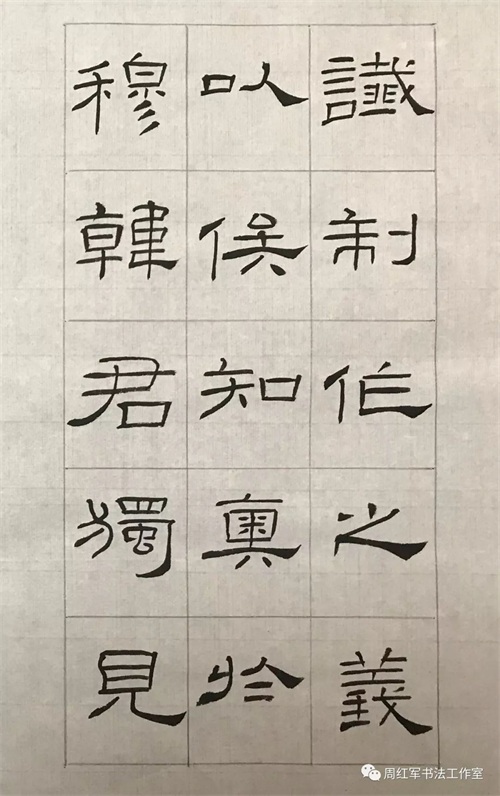 讖制作之義
以俟知奧於
穆韓君獨見
周红军书法工作室